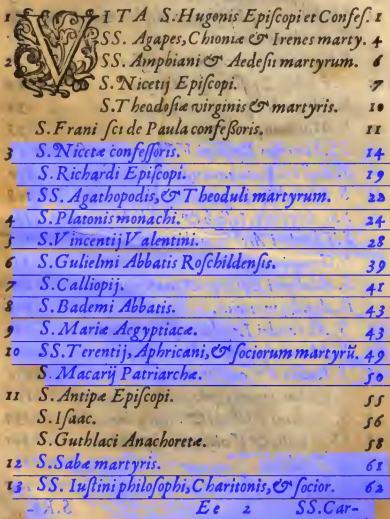 1 VITA S. Hugonis Episcopi et Confes. 1
SS. Agapes, Chioniæ & Irenes marty. 4
2 SS. Amphiani & Aedesii martyrum. 6
S. Nicetij Episcopi. 7
S. Theodosiæ virginis & martyris. 10
S. Frani sci de Paula confeßoris. 11
3 S. Nicetæ confessoris. 14
S. Richardi Episcopi. 19
SS. Agathopodis, & Theoduli martyrum. 22
4 S. Platonis monachi. 24
5 S. Vincentij Valentini. 28
6 S. Gulielmi Abbatis Roschildensis. 39
7 S. Calliopij. 41
8 S. Bademi Abbatis. 43
9 S. Mariæ Aegyptiacæ. 43
10 SS. Terentij, Aphricani, & sociorum martyrū. 49
S. Macarij Patriarchæ. 50
11 S. Antipæ Episcopi. 55
S. Isaac. 56
S. Guthlaci Anachoretæ. 58
12 S. Sabæ martyris. 61
13 SS. Iustini philosophi, Charitonis, & socior. 62
Ee 2 SS. Car-